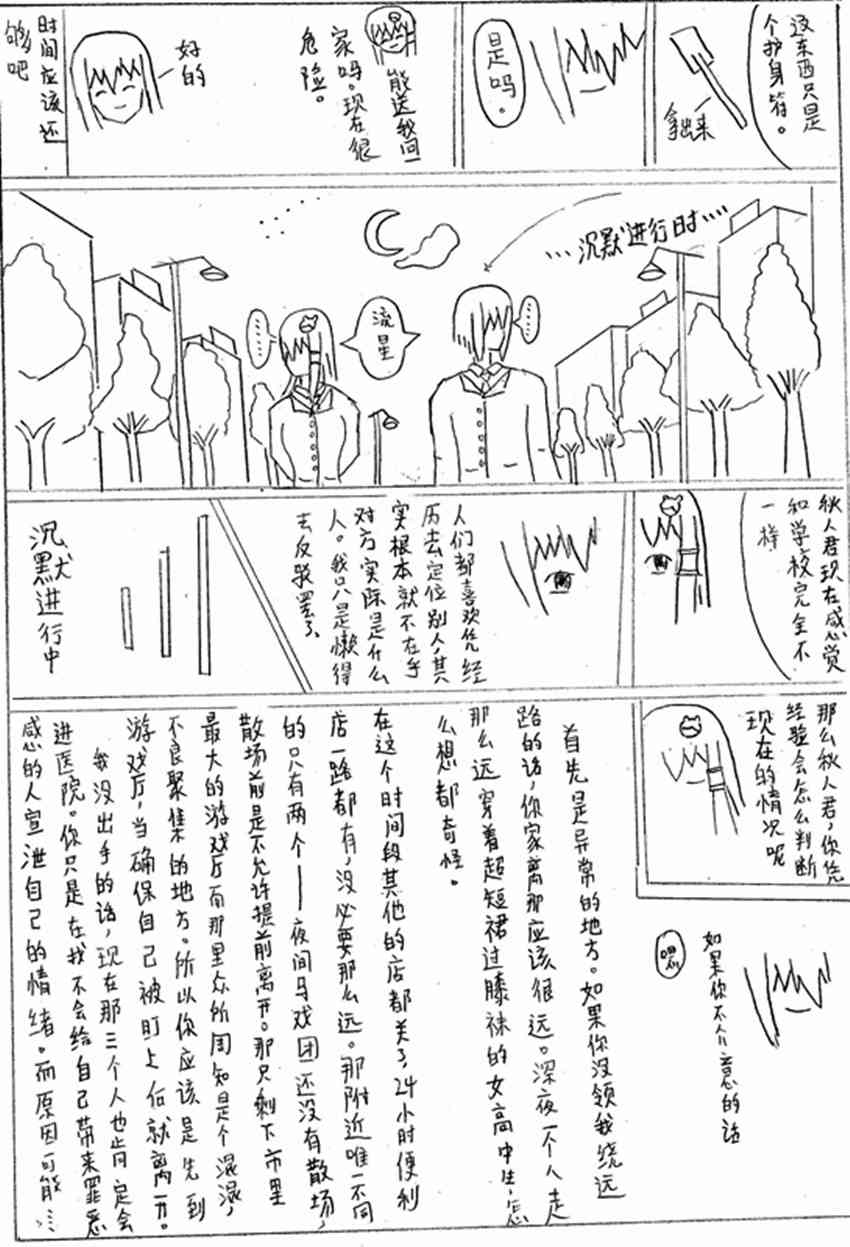 这东西只是
个护身符。
拿出来
是吗。
能送我回
家吗。现在很
危险。
好的
时间应该还
够吧
…沉默进行时…
……
流星
……
秋人君现在感觉
和学校完全不
一样
人们都喜欢凭经
历去定位别人,其
实根本就不在乎
对方实际是什么
人。我只是懒得
去反驳罢了
沉默进行中
那么秋人君,你凭
经验会怎么判断
现在的情况呢
如果你不介意的话
嗯
首先是异常的地方。如果你没领我绕远
路的话,你家离那应该很远。深夜一个人走
那么远穿着超短裙过膝袜的女高中生,怎
么想都奇怪。
在这个时间段其他的店都关了,24小时便利
店一路都有,没必要那么远。那附近唯一不同
的只有两个——夜间马戏团还没有散场,
散场前是不允许提前离开。那只剩下市里
最大的游戏厅而那里众所周知是个混混,
不良聚集的地方。所以你应该是先到
游戏厅,当确保自己被盯上后就离开。
我没出手的话,现在那三个人也肯定会
进医院。你只是在找不会给自己带来罪恶
感的人宣泄自己的情绪。而原因可能……